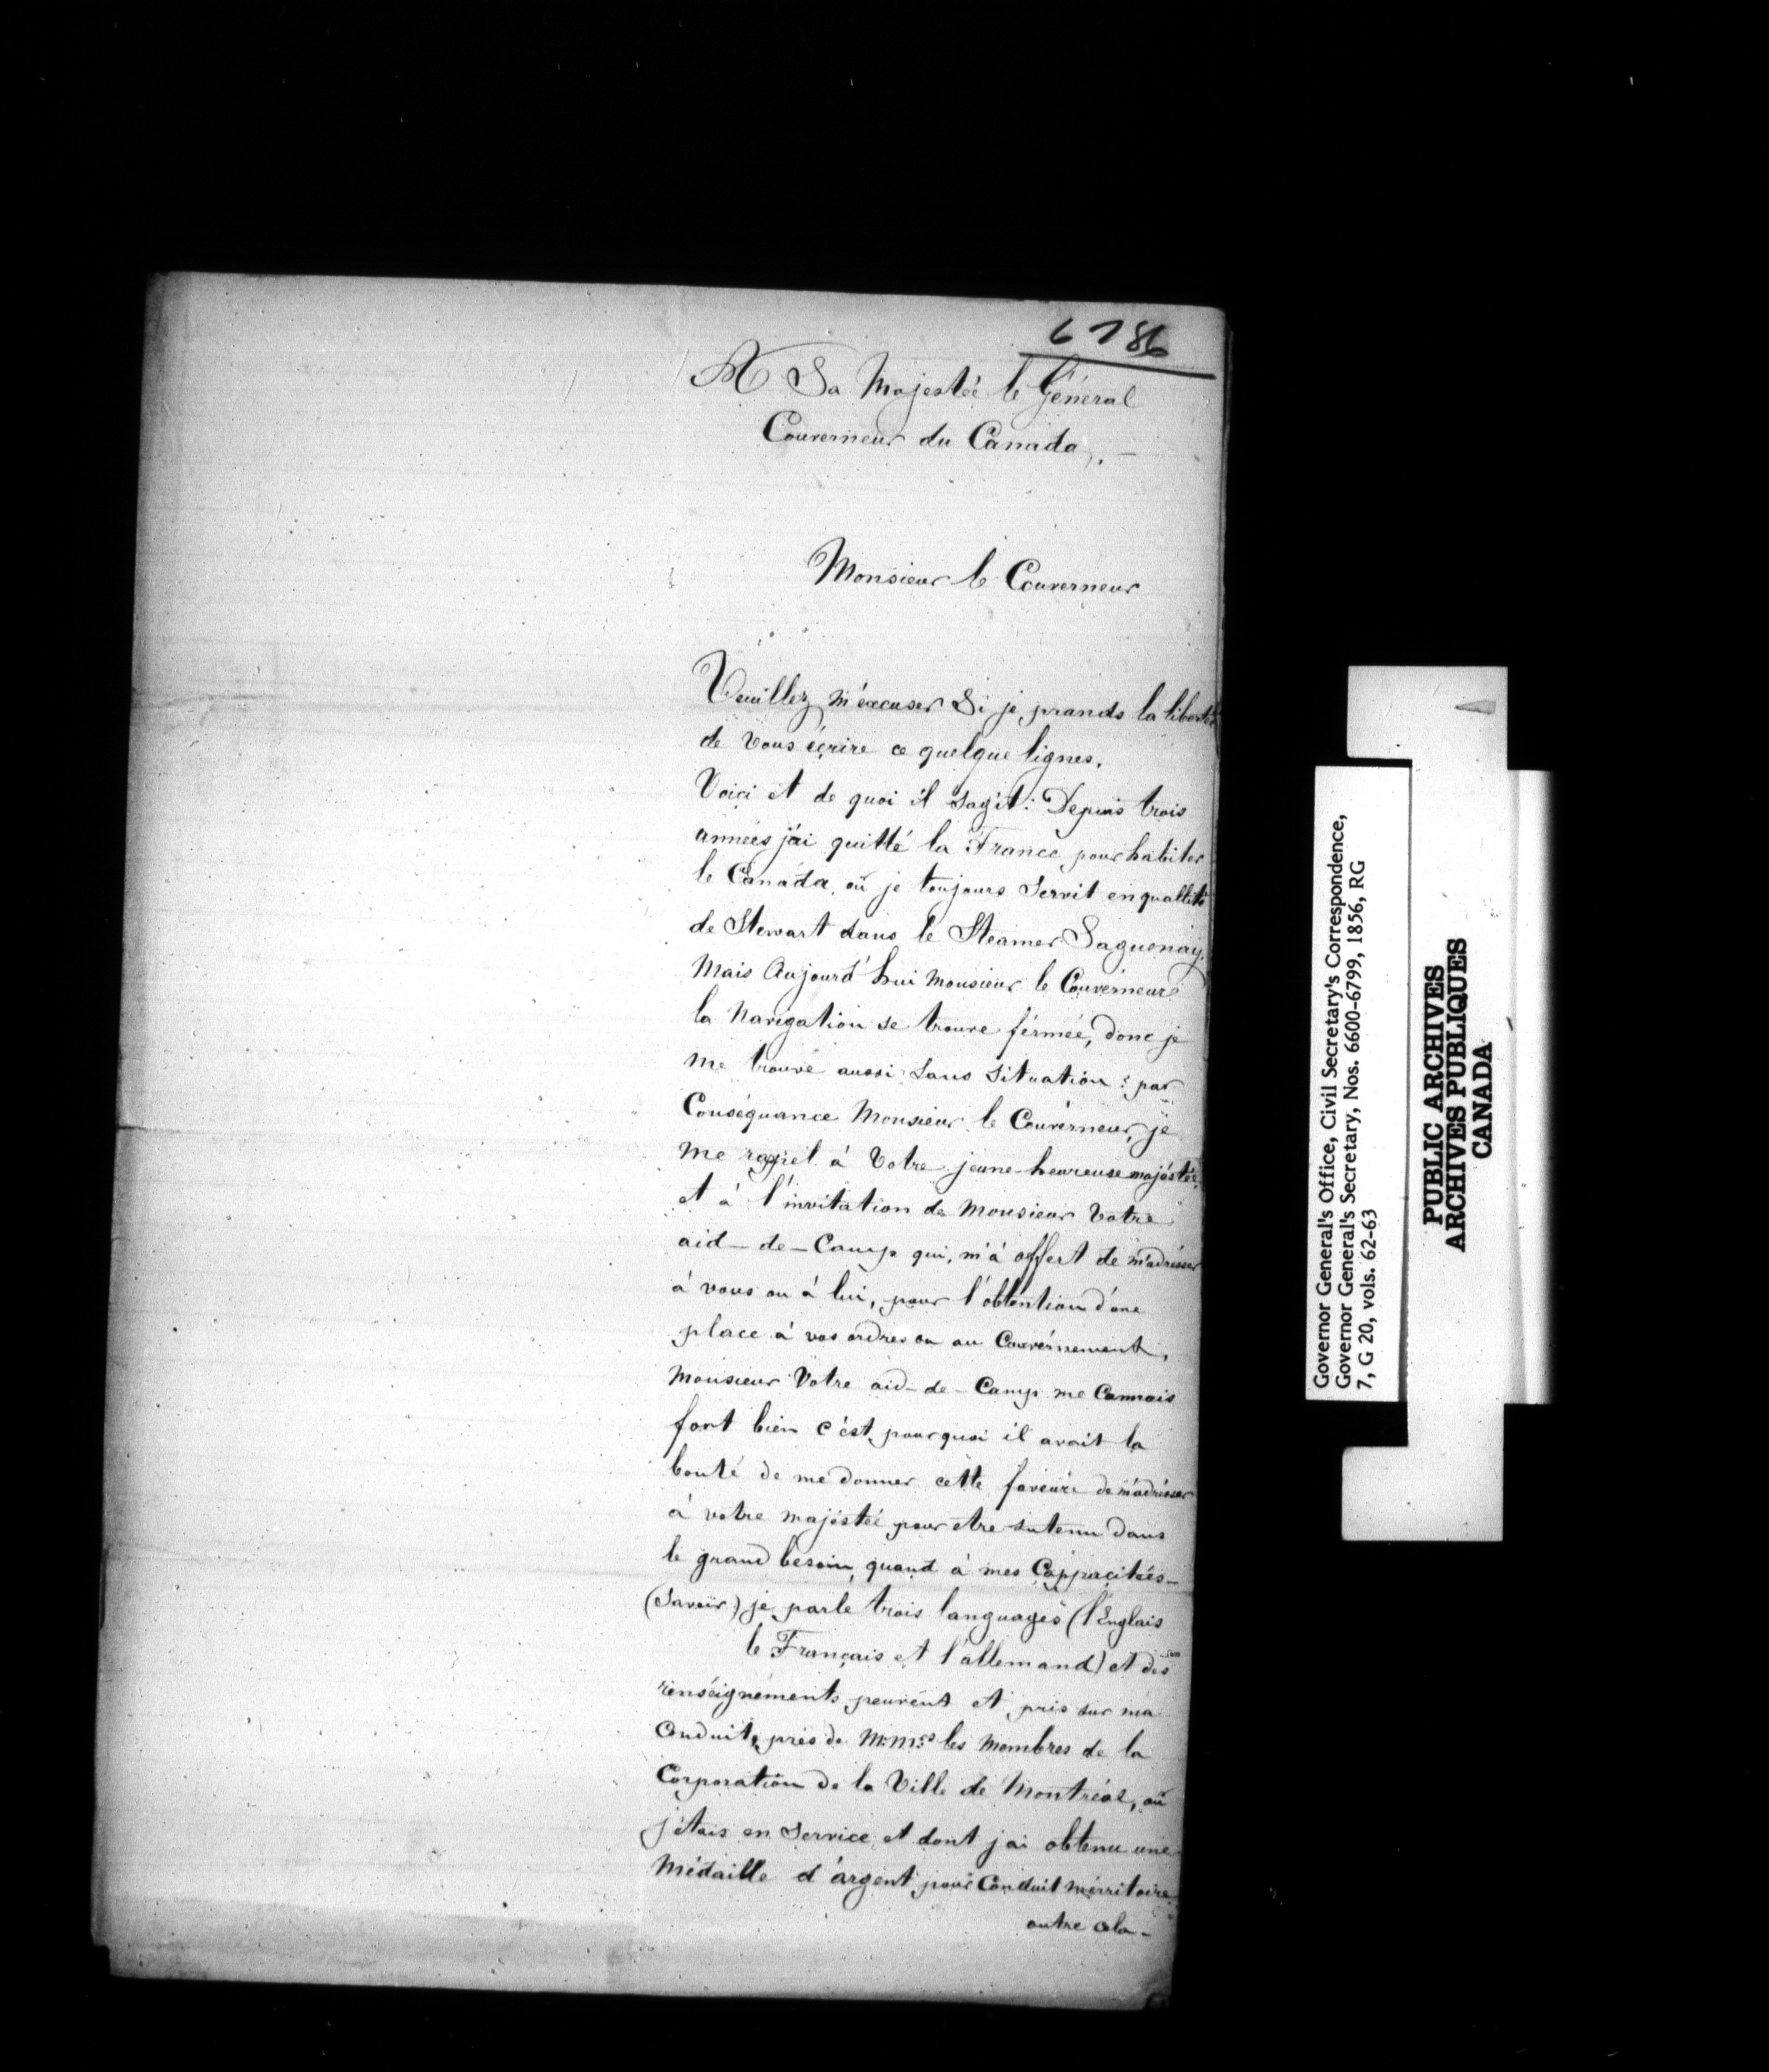 6786
A Sa Majestéé le Général
Couverneur du Canada.
Monsieur le Couverneur
Veuillez m'éxcuser Si je prands la liberté
de Vous écrire ce quelque lignes.
Voici et de quoi il sagit : Depuis trois
années j'ai quitté la France, pour habiter
le Canáda, où je toujours Servit en quallité
de Stewart dans le Steamer Saguenay.
Mais Aujourd'hui Monsieur le Couvérneur
la Navigation se trouve férmée, donc je
me trouve aussi Sans Situation : par
Conséquance Monsieur le Couvérneur, je
me rappel à Votre jeune-heureuse majéstéé,
et à l'invitation de Monsieur Votre
aid-de-Camp qui, m'à offert de m'adrésser
à vous ou à lui, pour l'obténtion d'une
place à vos ordres ou au Couvérnement,
Monsieur Votre aid-de-Camp me Connais
fort bien c'ést, pourquoi il avait la
bonté de me donner cette faveure de m'adrésser
à votre majéstéé pour etre sutenu dans
le grand besoin, quand à mes Cappacitées-
(Savoir) je parle trois languages (l'Englais
le Français et l'allemand) et des
renséignéments peuvent et pris sur ma
Conduit, près de M.M.rs les Membres de la
Corporation de la Ville de Montréal, où
j'étais en Service et dont j'ai obtenu une
Médaille d'argent pour Conduit mérritoire
outre cela-
Governor General's Office, Civil Secretary's Correspondence,
Governor General's Secretary, Nos. 6600-6799, 1856, RG
7, G 20, vols. 62-63
PUBLIC ARCHIVES
ARCHIVES PUBLIQUES
CANADA